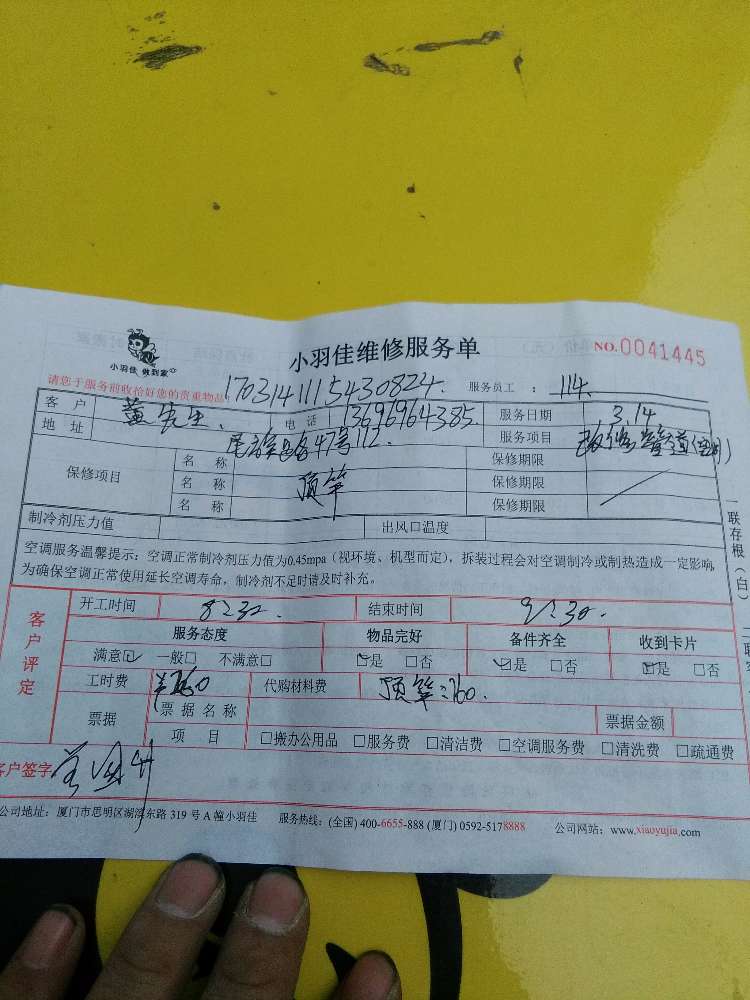 小羽佳 做到家
小羽佳维修服务单 NO.0041445
请您于服务前收拾好您的贵重物品 1703141115430824. 服务员工 : 114.
客户 董先生. 电话 13696964385. 服务日期 3.14
地址 47号112 服务项目
保修项目 名称 保修期限
名称 顶笔 保修期限
名称 保修期限
制冷剂压力值 出风口温度
空调服务温馨提示：空调正常制冷剂压力值为0.45mpa（视环境、机型而定），拆装过程会对空调制冷或制热造成一定影响，
为确保空调正常使用延长空调寿命，制冷剂不足时请及时补充。
一联存根（白）
客户评定
开工时间 8:30. 结束时间 9:30.
服务态度 物品完好 备件齐全 收到卡片
满意☑ 一般□ 不满意□ ☑是 □否 ☑是 □否 ☑是 □否
工时费 代购材料费
票据 票据名称 票据金额
项目 □搬办公用品 □服务费 □清洁费 □空调服务费 □清洗费 □疏通费
客户签字
公司地址：厦门市思明区湖滨东路 319 号 A 幢小羽佳 服务热线：(全国) 400-6655-888 (厦门) 0592-5178888 公司网站：www.xiaoyujia.com